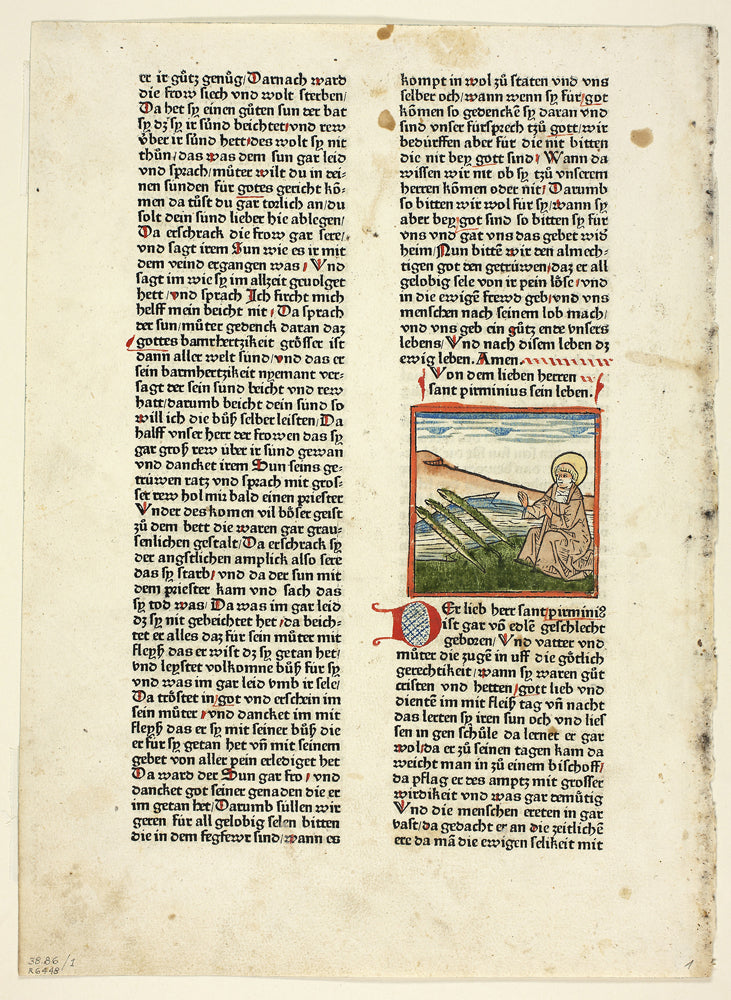 er ir gůtz genůg/Darnach ward
die frow siech vnd wolt sterben/
Da het sy einen gůten sun der bat
sy dz sy ir sünd beichtet/vnd rew
über ir sünd hett/des wolt sy nit
thůn/das was dem sun gar leid
vnd sprach/můter wilt du in dei-
nen sunden für gotes gericht kö-
men da tůst du gar torlich an/du
solt dein sund lieber hie ablegen/
Da erschrack die frow gar sere/
vnd sagt irem Sun wie es ir mit
dem veind ergangen was/Vnd
sagt im wie sy im allzeit geuolget
hett/vnd sprach Ich fircht mich
helff mein beicht nit/Da sprach
der sun/můter gedenck daran daz
gottes barmhertzikeit grösser ist
dann aller welt sund/vnd das er
sein barmhertzikeit nyemant ver-
sagt der sein sund beicht vnd rew
hatt/darumb beicht dein sund so
will ich die bůß selber leisten/Da
halff vnser herr der frowen das sy
gar groß rew über ir sünd gewan
vnd dancket irem Sun seins ge-
trüwen ratz vnd sprach mit gros-
ser rew hol mir bald einen priester
Vnder des komen vil böser geist
zů dem bett die waren gar grau-
senlichen gestalt/Da erschrack sy
der angstlichen amplick also sere
das sy starb/vnd da der sun mit
dem priester kam vnd sach das
sy tod was/Da was im gar leid
dz sy nit gebeichtet het/da beich-
tet er alles daz für sein můter mit
fleyß das er wist dz sy getan het/
vnd leystet volkomne bůß für sy
vnd was im gar leid vmb ir sele/
Da tröstet in got vnd erschein im
sein můter/vnd dancket im mit
fleyß das er sy mit seiner bůß die
er für sy getan het vñ mit seinem
gebet von aller pein erlediget het
Da ward der Sun gar fro/vnd
dancket got seiner genaden die er
im getan het/Darumb süllen wir
geren für all gelobig selen bitten
die in dem fegfewr sind/wann es
kompt in wol zů staten vnd vns
selber och/wann wenn sy für got
kömen so gedencke sy daran vnd
sind vnser fürsprech tzů gott/wir
bedürffen aber für die nit bitten
die nit bey gott sind/Wann da
wissen wir nit ob sy tzů vnserem
herren kömen oder nit/Darumb
so bitten wir wol für sy/wann sy
aber bey got sind so bitten sy für
vns vnd gat vns das gebet wid
heim/Nun bittē wir den almech-
tigen got den getrüwen/daz er all
gelobig sele von ir pein löse/vnd
in die ewigē frewd geb/vnd vns
menschen nach seinem lob mach/
vnd vns geb ein gůtz ende vnsers
lebens/Vnd nach disem leben dz
ewig leben. Amen.
Von dem lieben herren
sant pirminius sein leben.
DEr lieb herr sant pirminiꝰ
ist gar vō edlē geschlecht
geboren/Vnd vatter vnd
můter die zugē in uff die götlich
gerechtikeit/wann sy waren gůt
cristen vnd hetten/gott lieb vnd
dientē im mit fleiß tag vñ nacht
das lerten sy iren sun och vnd lies
sen in gen schůle da lernet er gar
wol/da er zů seinen tagen kam da
weicht man in zů einem bischoff/
da pflag er des amptz mit grosser
wirdikeit vnd was gar demůtig
Vnd die menschen ereten in gar
vast/da gedacht er an die zeitlichē
ere da mā die ewigen selikeit mit
38.86/1
R6448
1